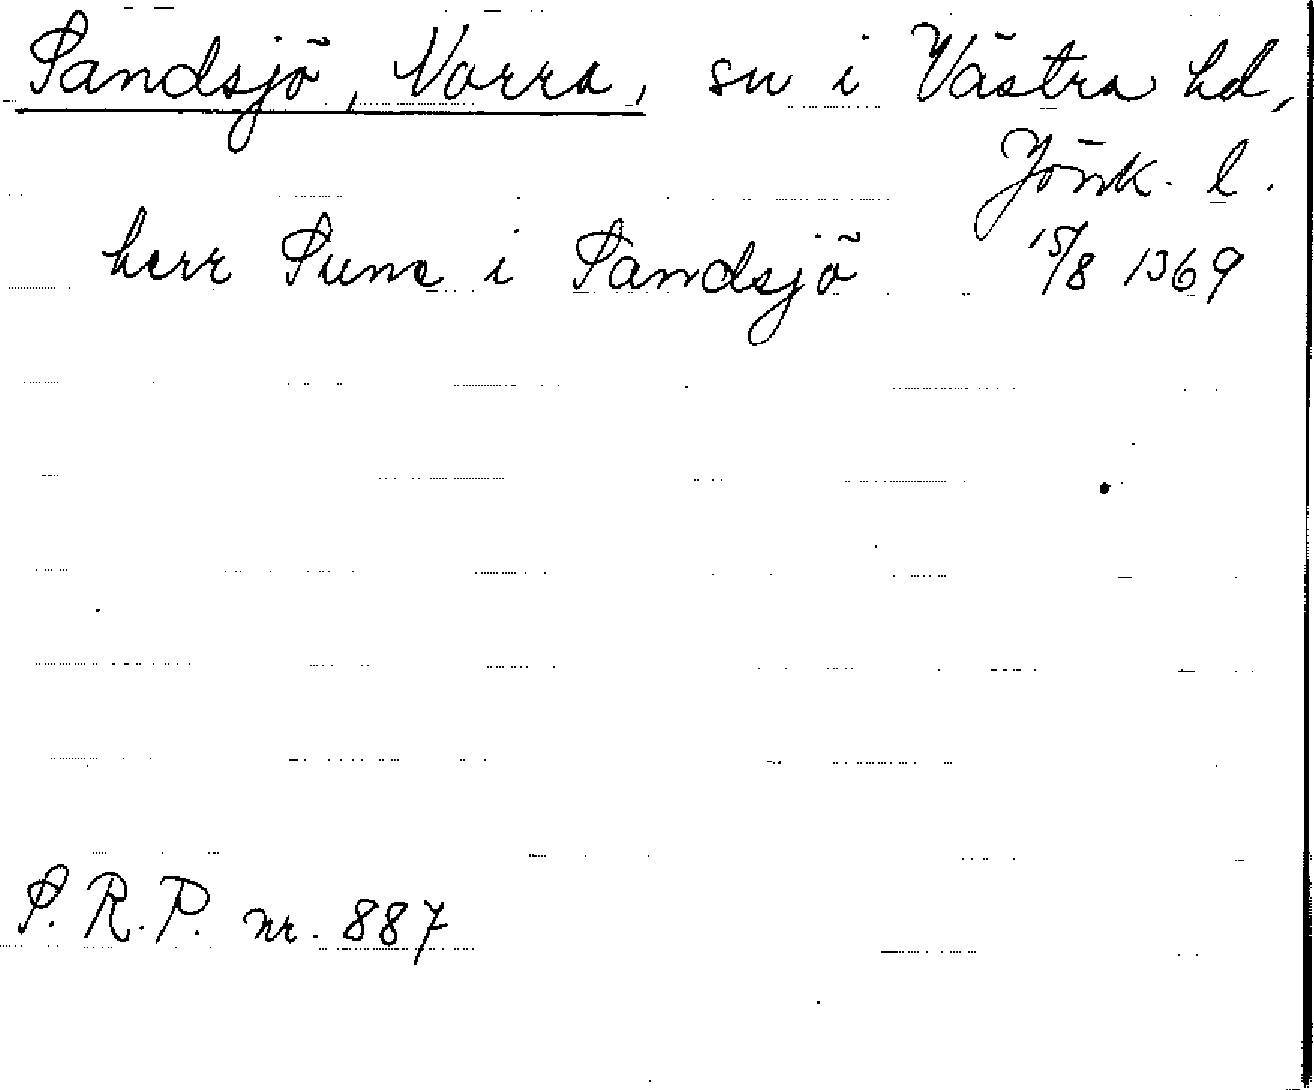 Sandsjö, Norra, sn i Västra hd,
Jönk. l.
herr Sune i Sandsjö 15/8 1369
S. R. P. nr. 887